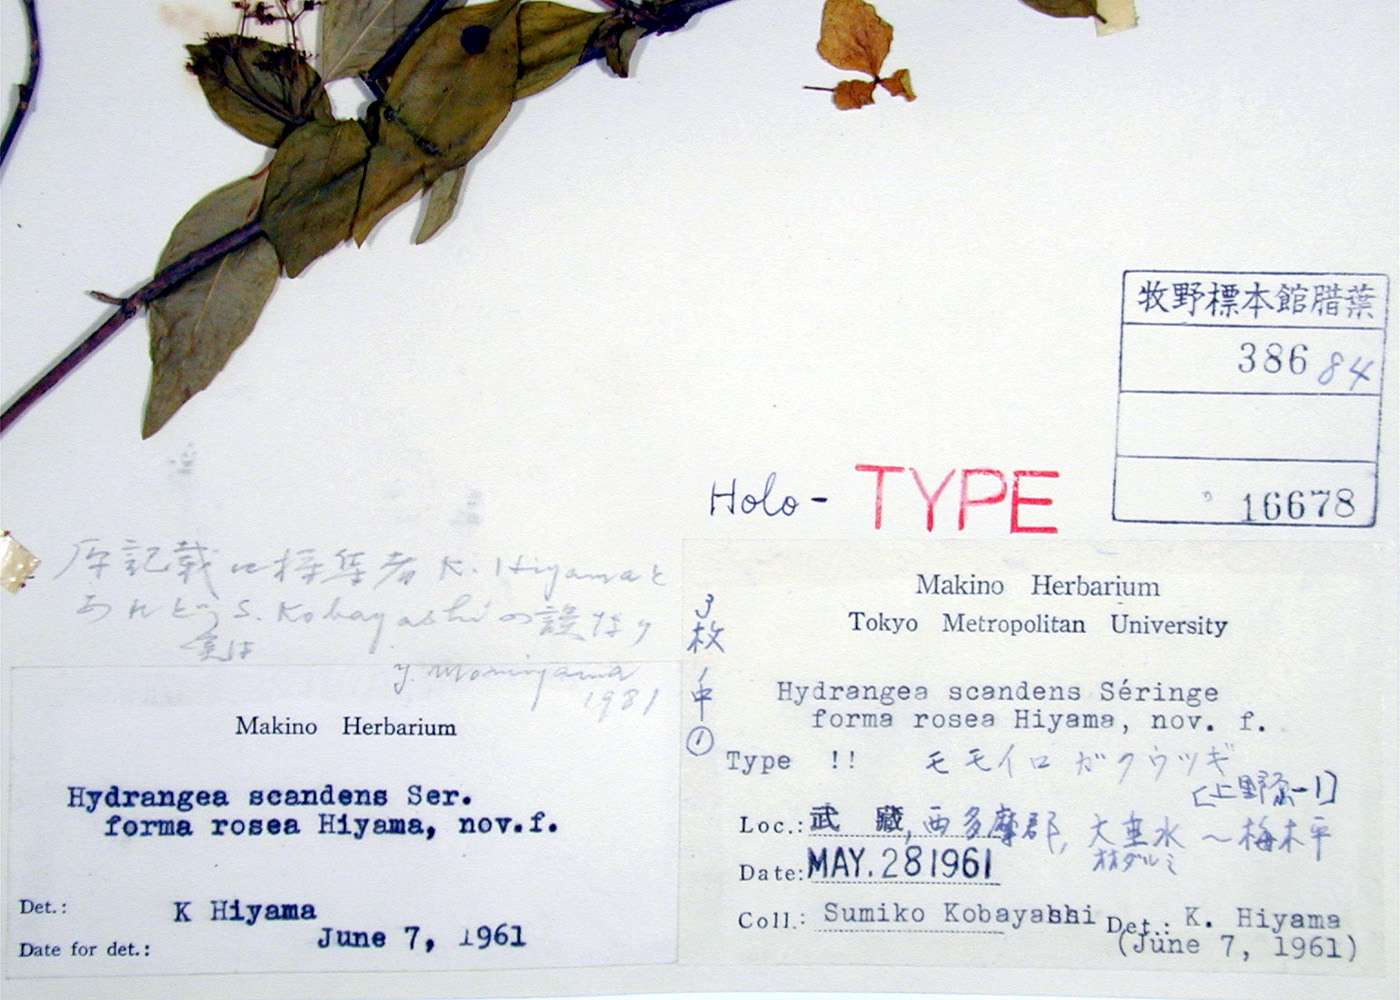 牧野標本館腊葉
38684
16678
Holo- TYPE
原記載に採集者 K. Hiyama と
あれど S. Kobayashi の誤なり
Y. Moriyama
1981
3枚ノ中①
Makino Herbarium
Tokyo Metropolitan University
Hydrangea scandens Séringe
forma rosea Hiyama, nov. f.
Type !! モモイロガクウツギ
[上野原-1]
Loc.: 武 藏, 西多摩郡, 大垂水 〜梅木平
オオダルミ
Date: MAY. 28 1961
Coll.: Sumiko Kobayashi Det.: K. Hiyama
(June 7, 1961)
Makino Herbarium
Hydrangea scandens Ser.
forma rosea Hiyama, nov.f.
Det.: K Hiyama
Date for det.: June 7, 1961